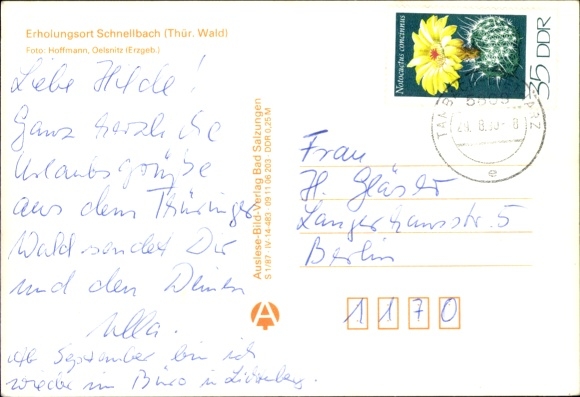 Erholungsort Schnellbach (Thür. Wald)
Foto: Hoffmann, Oelsnitz (Erzgeb.)
Liebe Hilde!
Ganz herzliche
Urlaubsgrüße
aus dem Thüringer
Wald sendet Dir
und den Deinen
Ulla.
Ab September bin ich
wieder im Büro in Lichtenberg.
Auslese-Bild-Verlag Bad Salzungen
S 1/87 · IV-14-483 · 09 11 06 203 · DDR 0,25 M
Notocactus concinnus
35 DDR
e
Frau
H. Gläser
Langerhansstr. 5
Berlin
1170